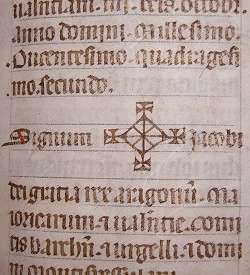 octobr.
anno domini millesimo
Ducentesimo quadragesi
mo secundo.
Signum jacobi
dei gratia rex aragonū. ma
ioricarum ⁊ ualentie comi
tis barchn̄. ⁊ urgelli ⁊ domi